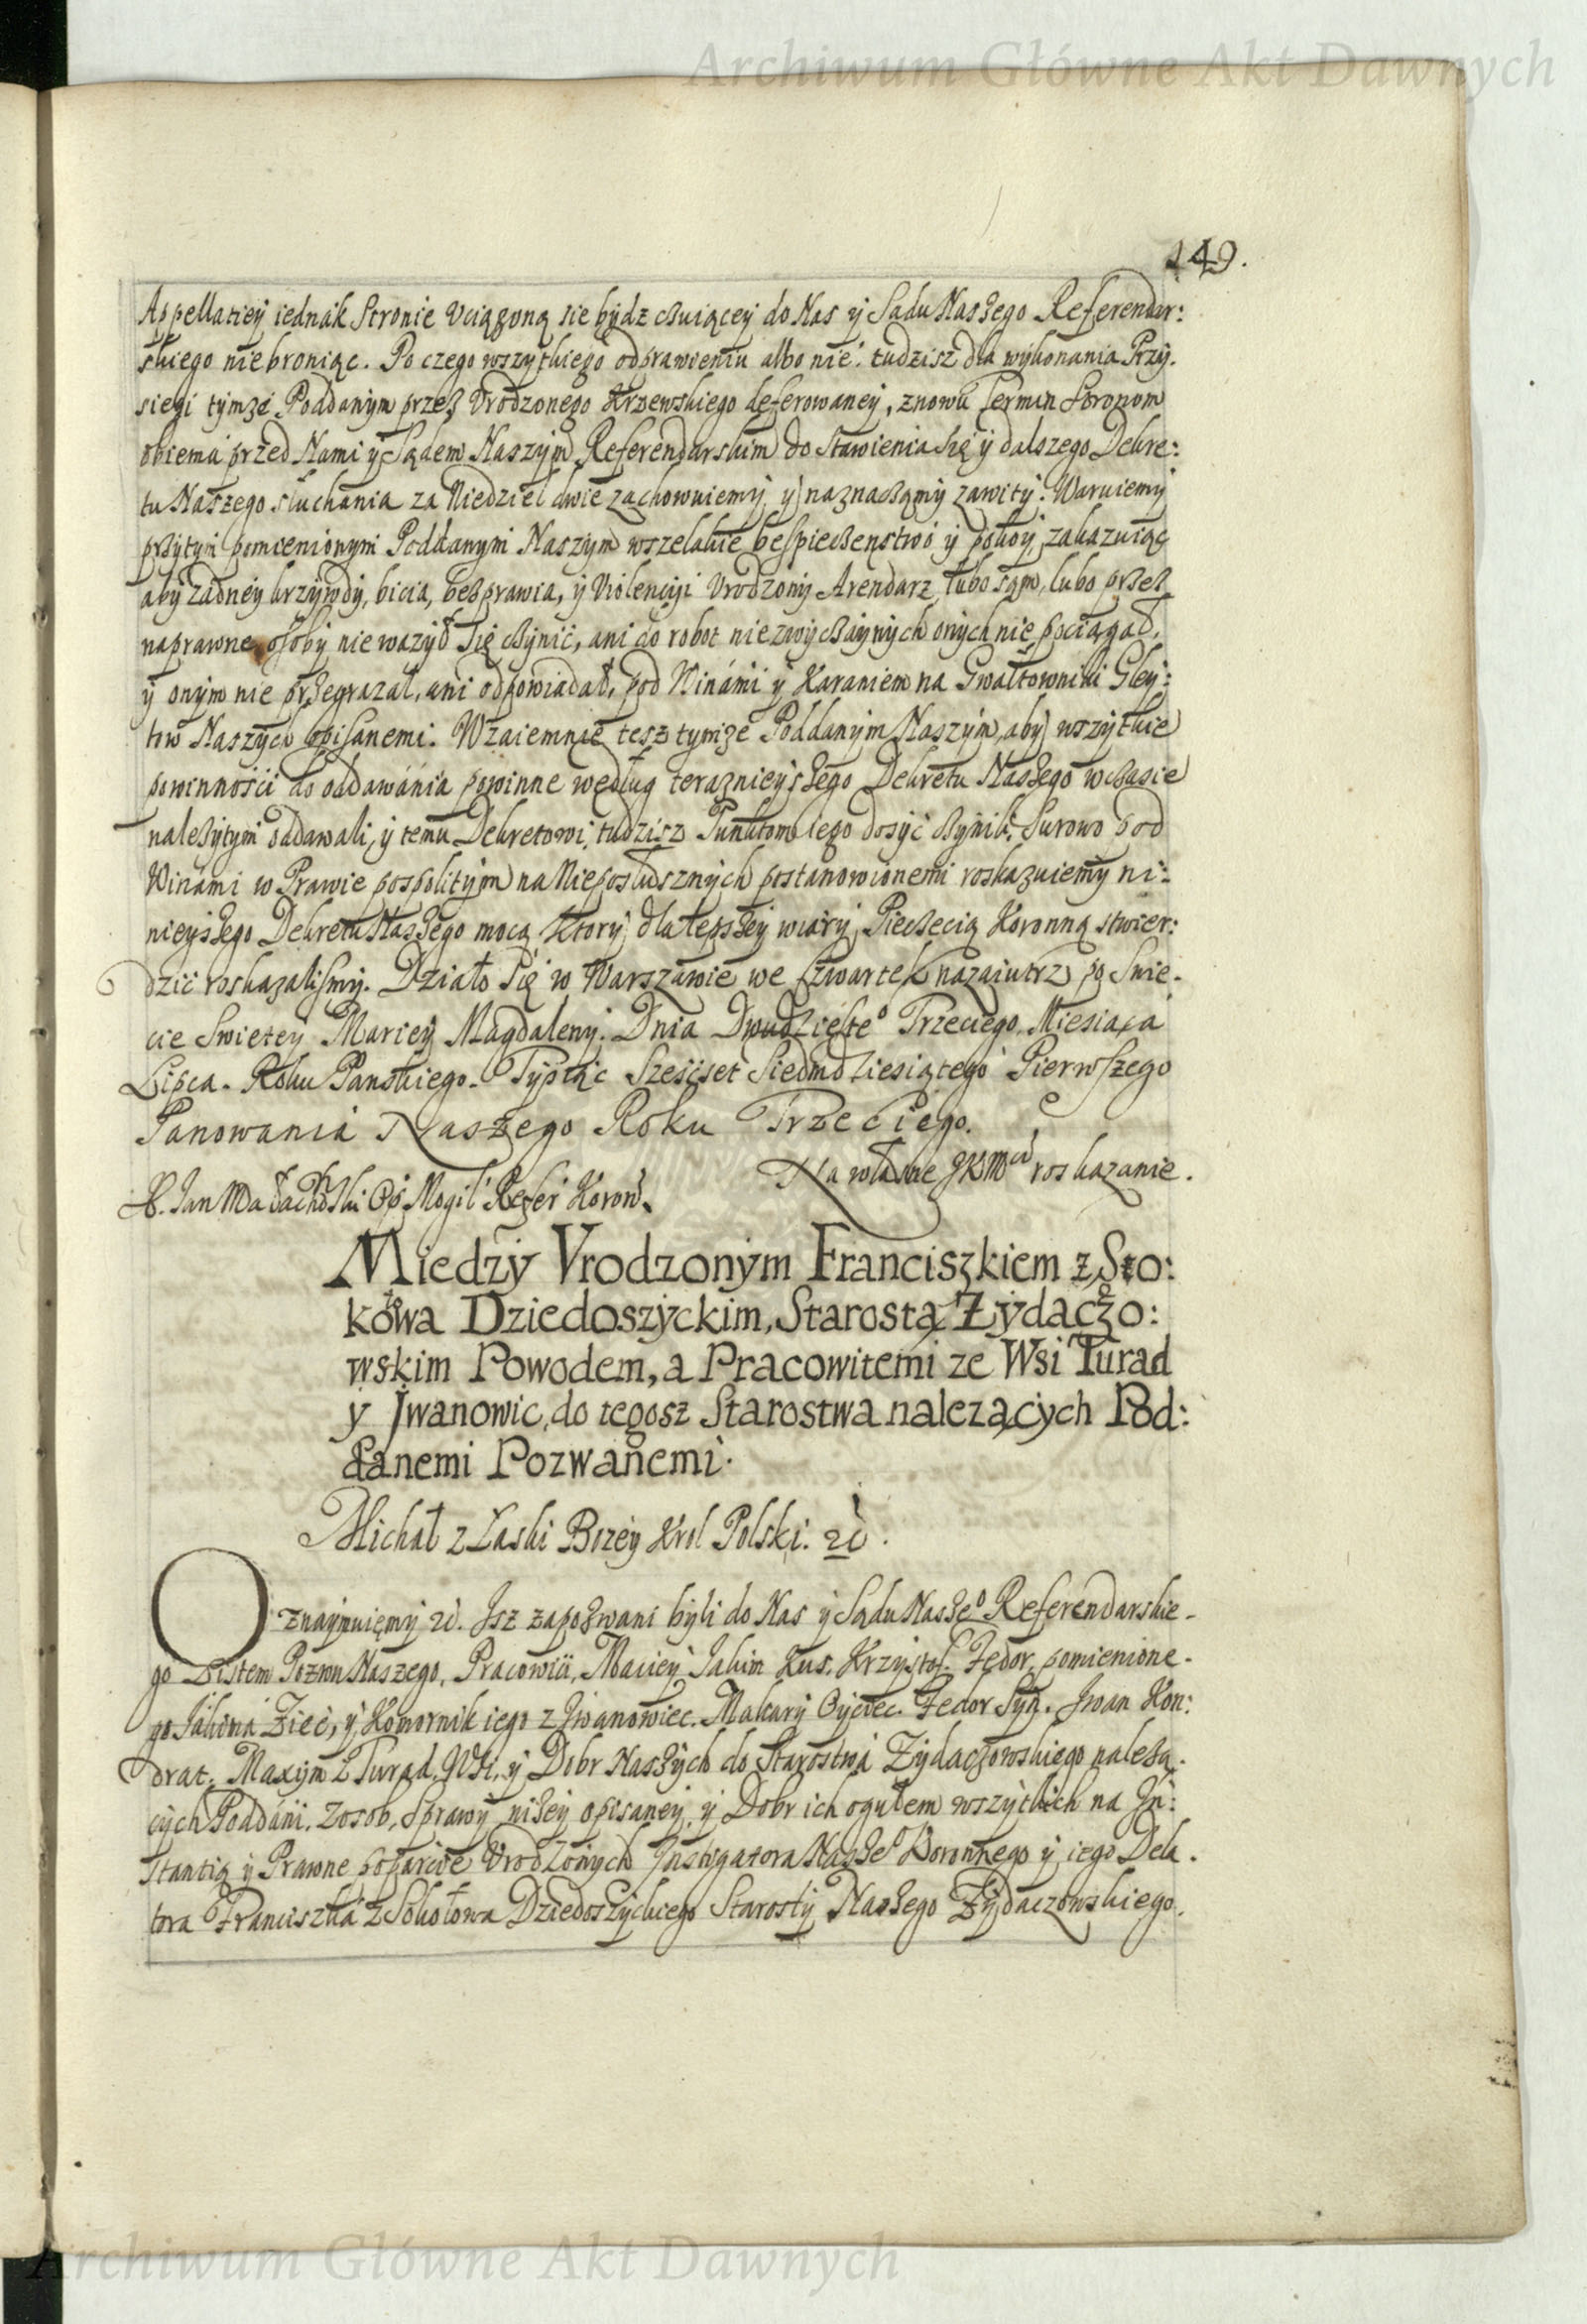 Archiwum Główne Akt Dawnych
149.
Appellatiey iednak Stronie Uciązoną sie bydz czuiącey do Nas y Sądu Naszego Referendar:
skiego nie broniąc. Po czego wszytkiego odprawieniu albo nie. tudzisz dla wykonania Przy.
siegi tymze Poddanym przez Urodzonego Krzewskiego deferowaney, znowu Termin Stronom
obiema przed Nami y Sądem Naszym Referendarskim do stawienia się y dalszego Dekre:
tu Naszego słuchania za Niedziel dwie zachowuiemy y naznaczamy zawity. Waruiemy
przytym pomienionym Poddanym Naszym wszelakie bespieczenstwo y pokoy, zakazuiąc
aby zadney krzywdy, bicia, bezprawia, y Violencyi Urodzony Arendarz lubo sąm, lubo przez
naprawne osoby nie wazył się czynić, ani do robot niezwyczaynych onych nie pociągał,
y onym nie przegrazał, ani odpowiadał, pod Winámi y Karaniem na Gwałtowniki Gley:
tow Naszych opisanemi. Wzaiemnie tesz tymze Poddanym Naszym, aby wszytkie
powinnosci do oddawánia powinne według teraznieyszego Dekretu Naszego w czasie
nalezytym oddawali, y temu Dekretowi, tudzisz Punktom iego dosyć czynili, surowo pod
Winámi w Prawie pospolitym na Nieposłusznych postanowionemi roskazuiemy ni:
nieyszego Dekretu Naszego mocą Ktory dla lepszey wiary, Pieczecią Koronną stwier:
dzić roskazalismy. Działo się w Warszawie we Czwartek nazaiutrz po Swie.
cie Swietey Mariey Magdaleny. Dnia Dwudzieste° Trzeciego, Miesiąca
Lipca. Roku Panskiego. Tysiąc Szescset Siedmdziesiątego Pierwszego
Panowania Naszego Roku Trzeciego.
Na własne JKMci roskazanie.
X. Jan Małachoski Op. Mogil. Refer. Koron.
Miedzy Vrodzonym Franciszkiem z Sto:
kowa Dziedoszyckim, Starostą Zydaczo:
wskim Powodem, a Pracowitemi ze Wsi Turad
y Jwanowic, do tegosz Starostwa nalezących Pod:
danemi Pozwanemi.
Michał z Łaski Bozey Krol Polski. &c.
Oznaymuiemy &c. Jsz zapozwani byli do Nas y Sądu Nasze° Referendarskie-
go Listem Pozwu Naszego, Pracowici, Maciey Jakim Kus. Krzysztof. Fedor, pomienione.
go Jakima Zieć, y Komornik iego z Jwanowiec. Makary Oyciec. Fedor Syn. Jwan Kon:
drat. Maxym z Turad, Wsi, y Dobr Naszych do Starostwa Zydaczowskiego nalezą.
cych Poddani. Zosob, Sprawy nizey opisaney, y Dobr ich ogułem wszytkich na Jn:
stantią y Prawne poparcie Urodzonych Jnstigatora Nasze° Koronnego y iego Dela.
tora Franciszka z Sokołowa Dziedoszyckiego Starosty Naszego Zydaczowskiego.
Archiwum Główne Akt Dawnych